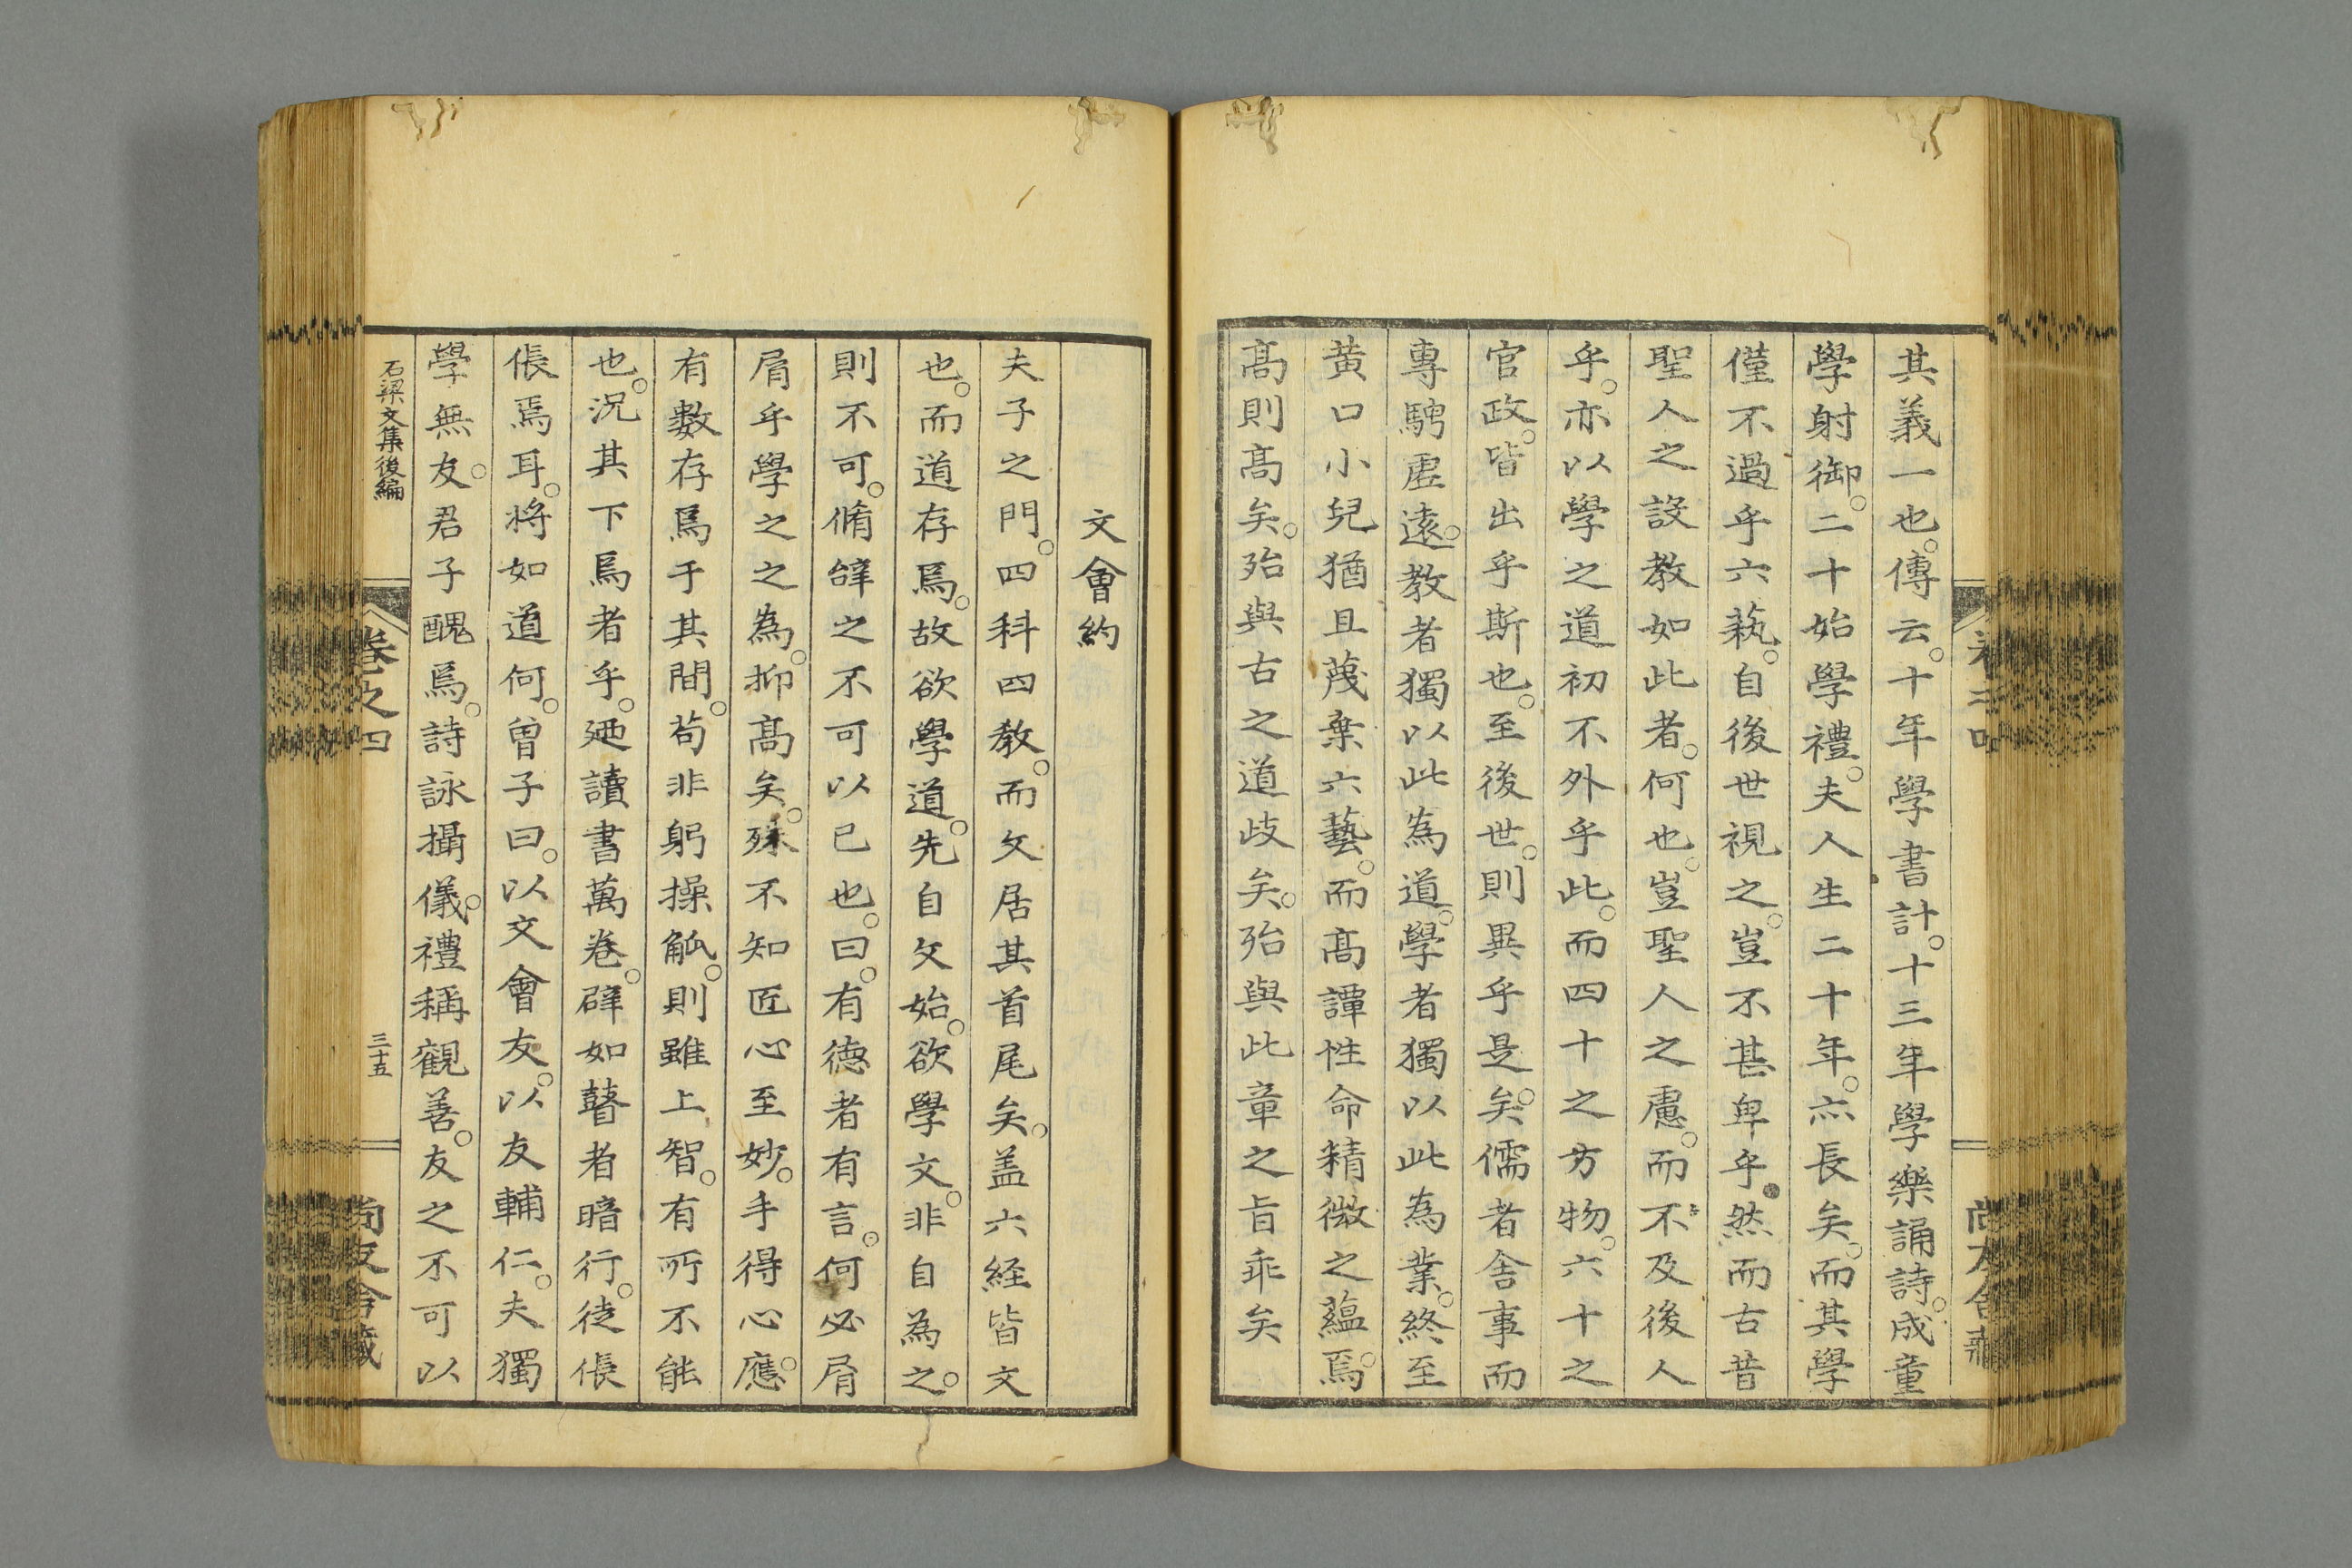 其義一也。傳云。十年學書計。十三年學樂誦詩。成童
學射御。二十始學禮。夫人生二十年。亦長矣。而其學
僅不過乎六藝。自後世視之。豈不甚卑乎。然而古昔
聖人之設教如此者。何也。豈聖人之慮。而不及後人
乎。亦以學之道初不外乎此。而四十之方物。六十之
官政。皆出乎斯也。至後世。則異乎是矣。儒者舍事而
專騁虛遠。教者獨以此為道。學者獨以此為業。終至
黄口小兒猶且蔑棄六藝。而高譚性命精微之蘊焉。
高則高矣。殆與古之道歧矣。殆與此章之旨乖矣
文會約
夫子之門。四科四教。而文居其首尾矣。盖六経皆文
也。而道存焉。故欲學道。先自文始。欲學文。非自為之。
則不可。脩辭之不可以已也。曰。有德者有言。何必屑
屑乎學之之為。抑高矣。殊不知匠心至妙。手得心應。
有數存焉于其間。苟非躬操觚。則雖上智。有所不能
也。況其下焉者乎。廼讀書萬卷。辟如瞽者暗行。徒倀
倀焉耳。將如道何。曽子曰。以文會友。以友輔仁。夫獨
學無友。君子醜焉。詩詠攝儀。禮稱觀善。友之不可以
石梁文集後編
卷之四
三十五
尚友舍藏